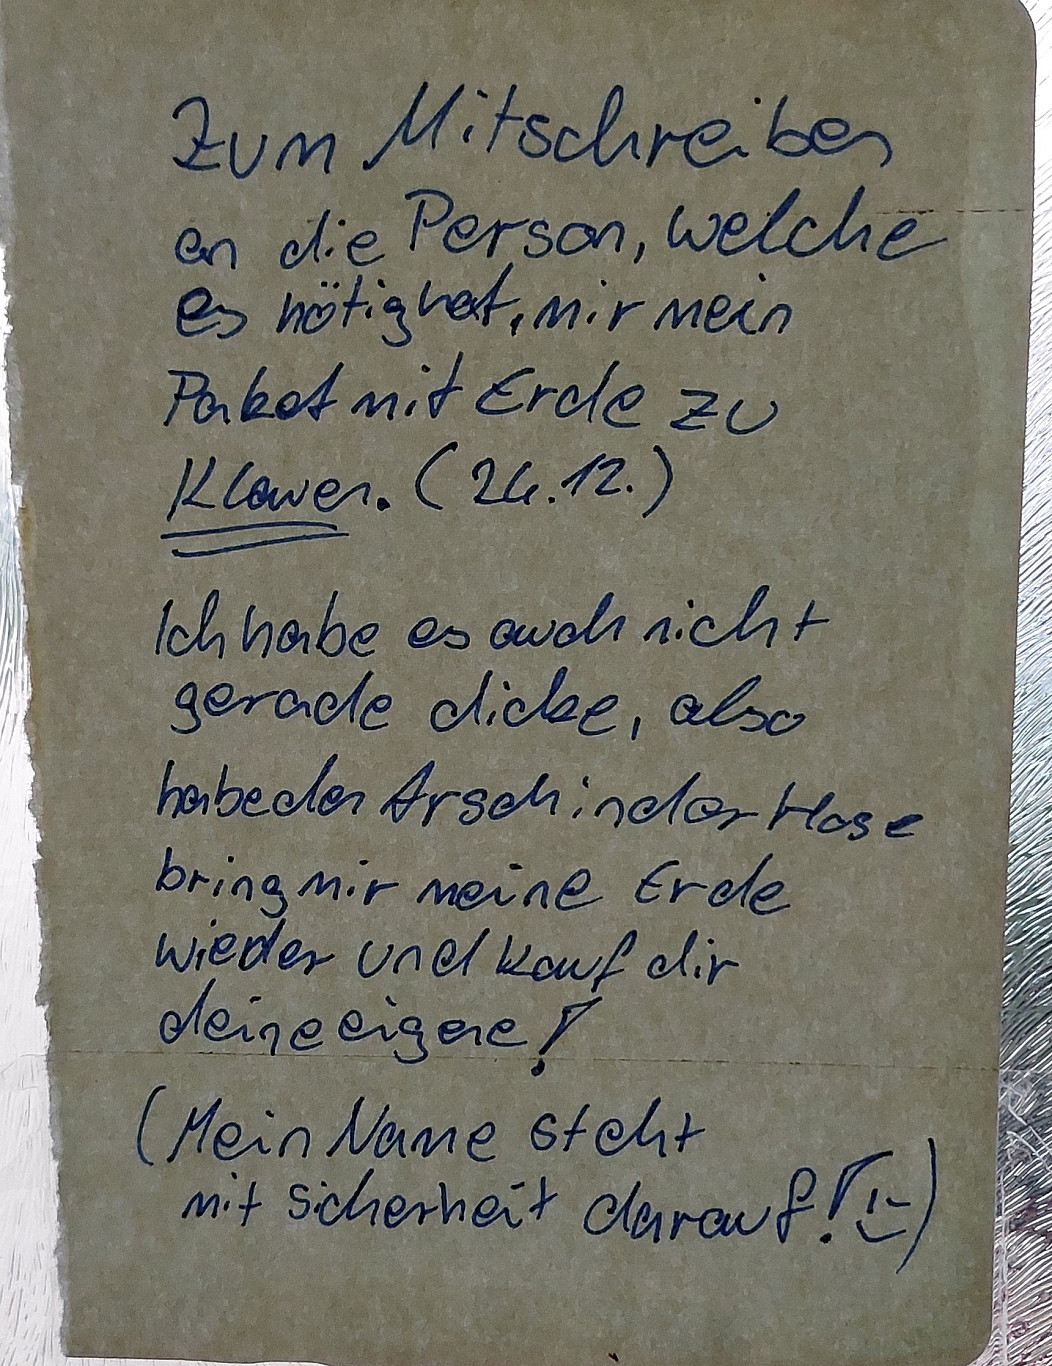 Zum Mitschreiben
an die Person, welche
es nötig hat, mir mein
Paket mit Erde zu
Klauen. (24.12.)
Ich habe es auch nicht
gerade dicke, also
habe den Arsch in der Hose
bring mir meine Erde
wieder und kauf dir
deine eigene!
(Mein Name steht
mit sicherheit darauf! :-)